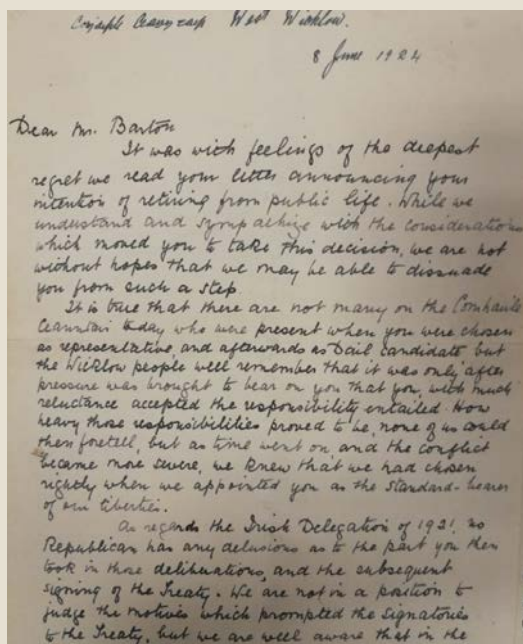 West Wicklow.
8 June 1924
Dear Mr. Barton
It was with feelings of the deepest
regret we read your letter announcing your
intention of retiring from public life. While we
understand and sympathise with the considerations
which moved you to take this decision, we are not
without hopes that we may be able to dissuade
you from such a step.
It is true that there are not many on the Comhairle
Ceanntair today who were present when you were chosen
as representative, and afterwards as Dail candidate, but
the Wicklow people well remember that it was only after
pressure was brought to bear on you that you, with much
reluctance accepted the responsibility entailed. How
heavy those responsibilities proved to be, none of us could
then foretell, but as time went on, and the conflict
became more severe, we knew that we had chosen
rightly when we appointed you as the standard-bearer
of our liberties.
As regards the Irish Delegation of 1921, no
Republican has any delusions as to the part you then
took in those deliberations, and the subsequent
signing of the Treaty. We are not in a position to
judge the motives which prompted the signatories
to the Treaty, but we are well aware that in the